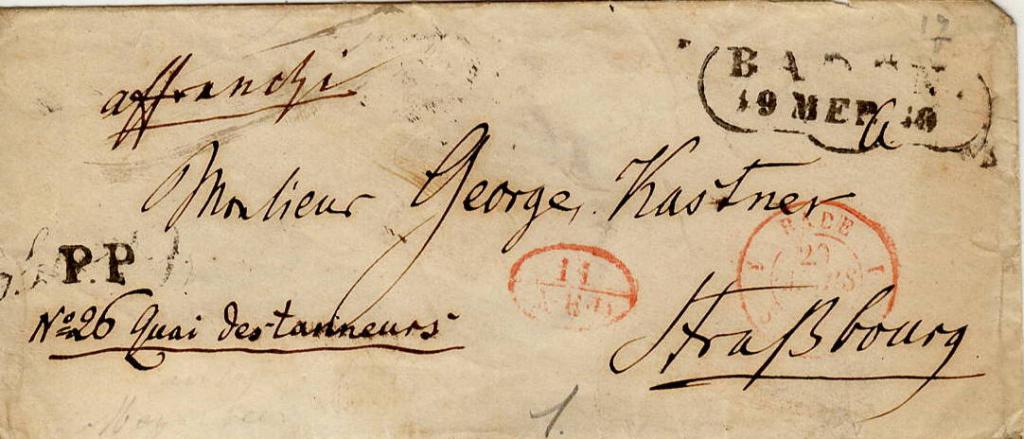 affranchi
17
BADEN.
19 MER
à
Monsieur George Kastner
P.P
11
BADE
20
N° 26 Quai des tanneurs
Straßbourg
1.